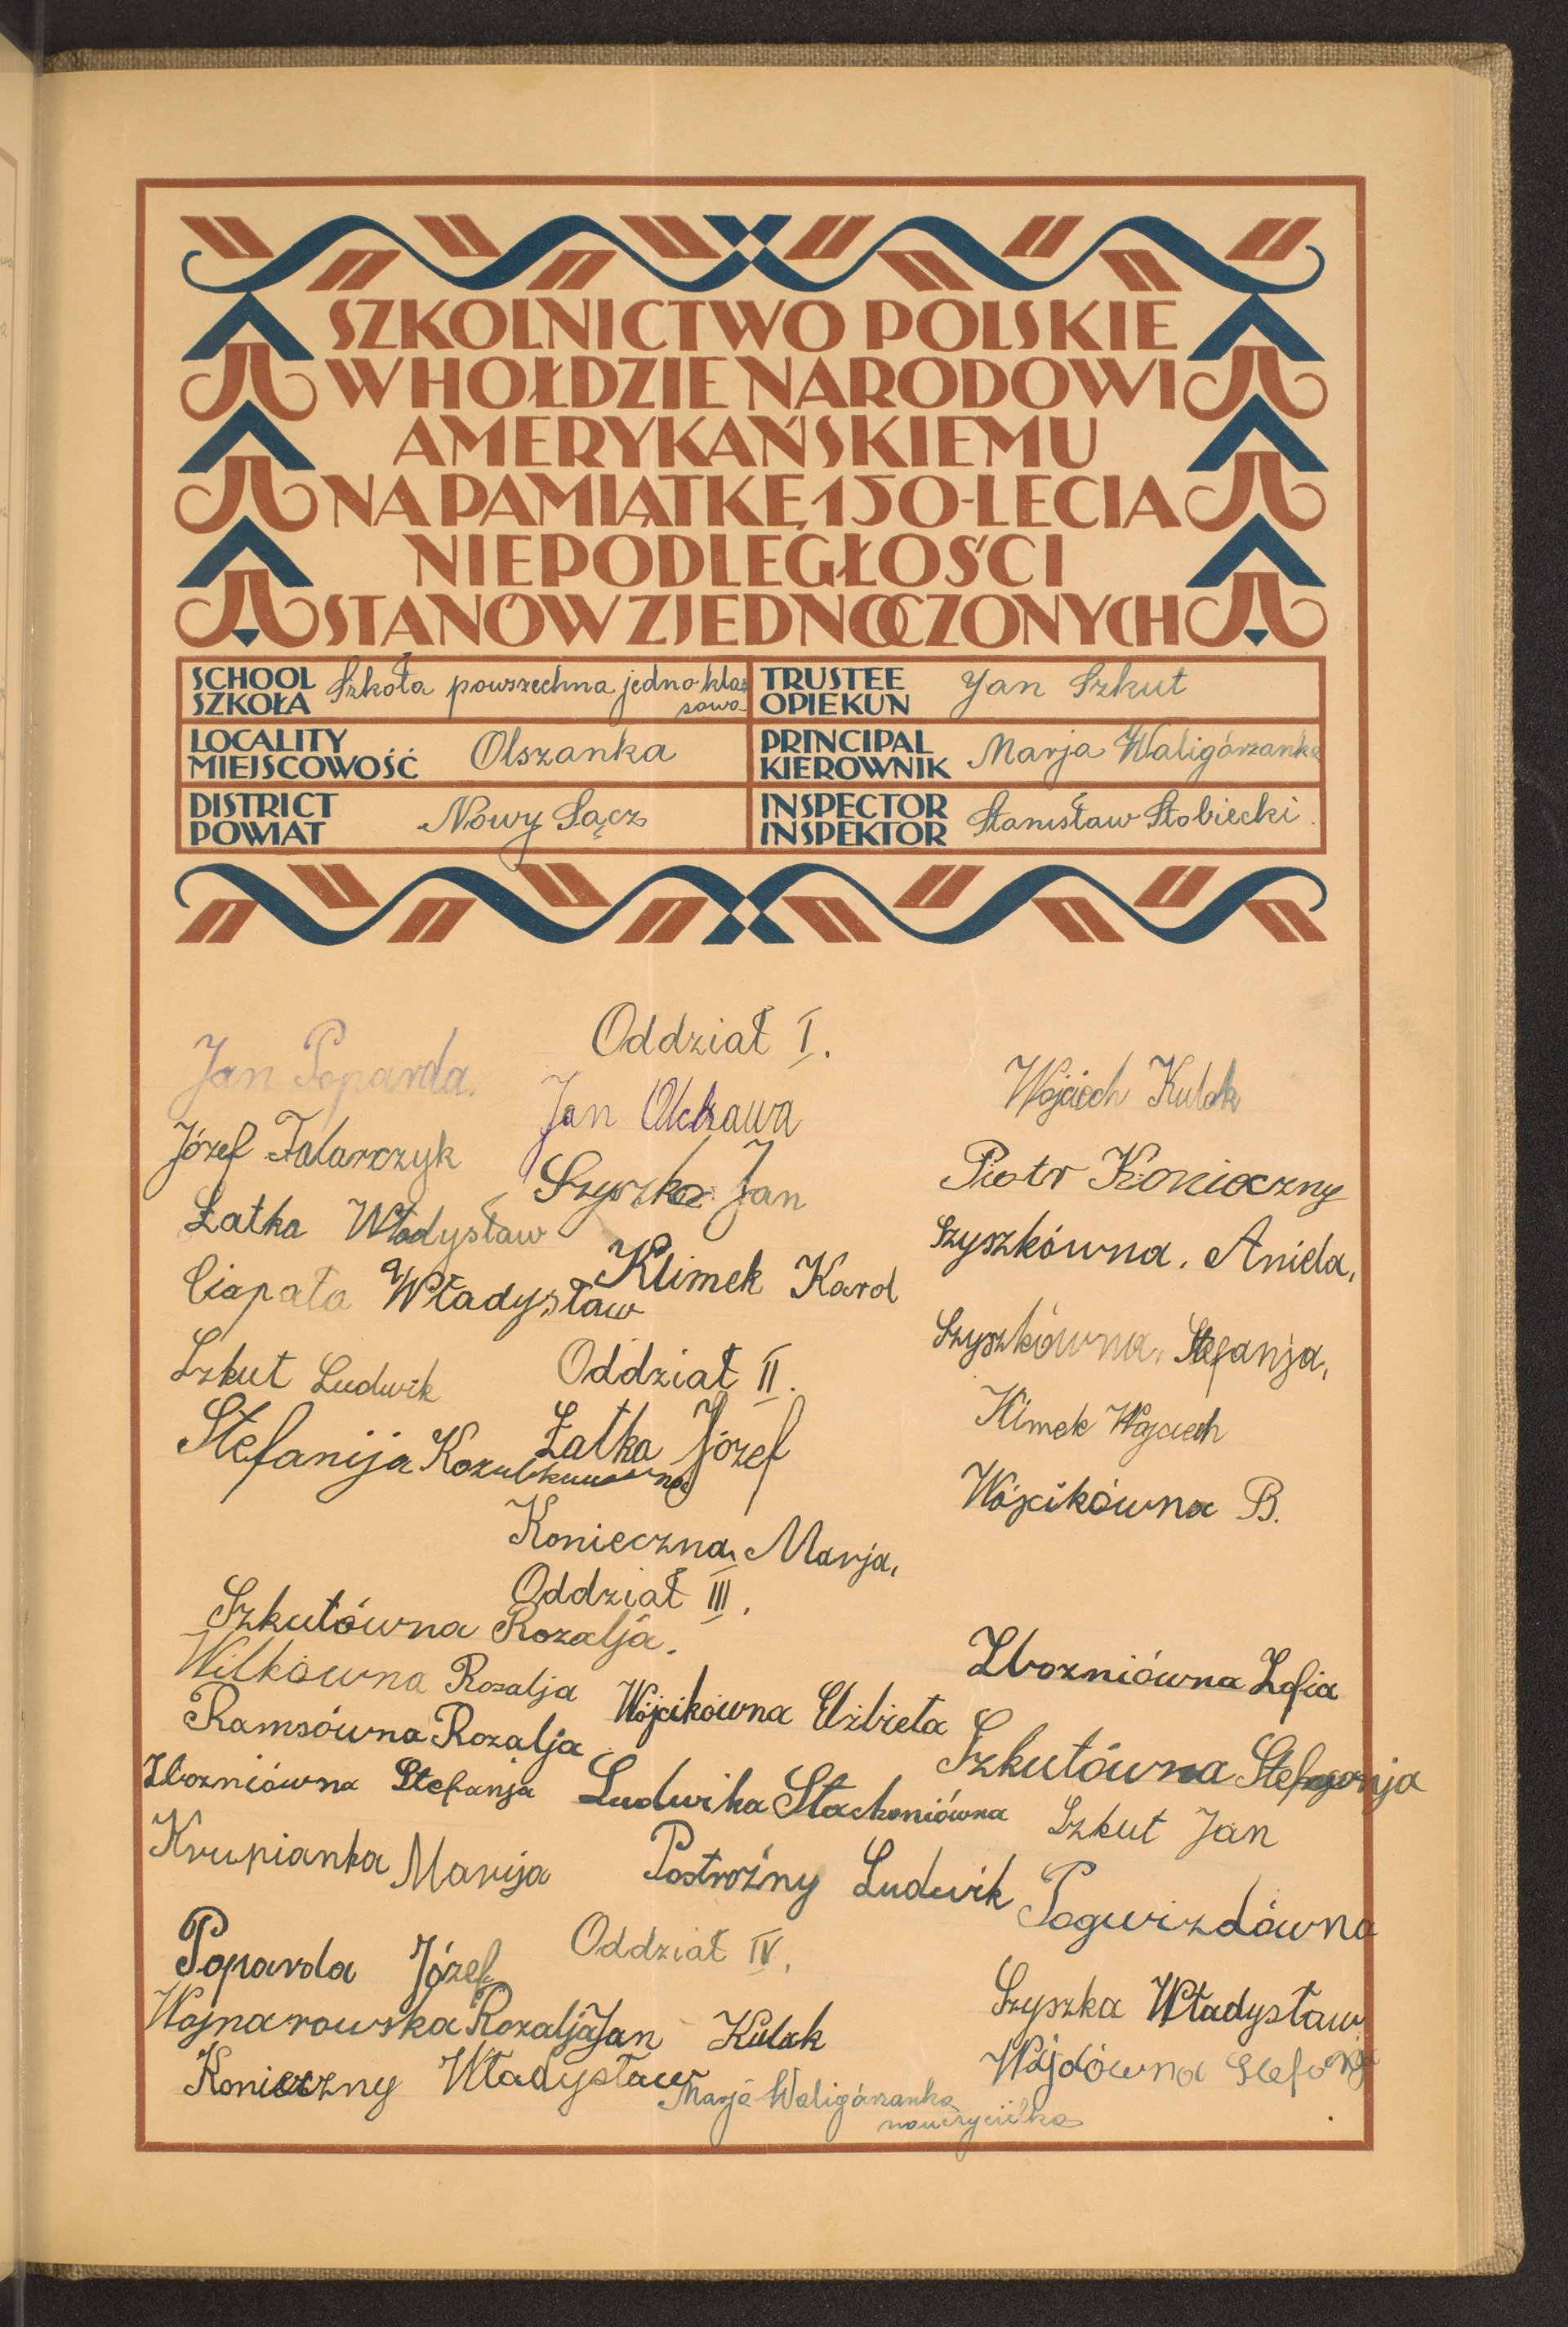 SZKOLNICTWO POLSKIE
W HOŁDZIE NARODOWI
AMERYKAŃSKIEMU
NA PAMIĄTKĘ 150-LECIA
NIEPODLEGŁOŚCI
STANÓW ZJEDNOCZONYCH
SCHOOL
SZKOŁA
Szkoła powszechna jedno-kla
sowa
TRUSTEE
OPIEKUN
Jan Szkut
LOCALITY
MIEJSCOWOŚĆ
Olszanka
PRINCIPAL
KIEROWNIK
Marja Waligórzanka
DISTRICT
POWIAT
Nowy Sącz
INSPECTOR
INSPEKTOR
Stanisław Stobiecki.
Oddział I.
Jan Poparda.
Jan Olchawa
Wojciech Kulak
Józef Talarczyk
Szyszka Jan
Piotr Konieczny
Łatka Władysław
Klimek Karol
Szyszkówna. Aniela.
Ciapała Władysław
Szyszkówna. Stefanja.
Szkut Ludwik
Oddział II.
Klimek Wojciech
Stefanija
Łatka Józef
Wójcikówna B.
Konieczna Marja.
Oddział III.
Szkutówna Rozalja.
Zbozniówna Zofia
Wilkówna Rozalja
Wójcikówna Elżbieta
Ramsówna Rozalja
Szkutówna Stefanja
Zbozniówna Stefanja
Ludwika Stachoniówna
Szkut Jan
Krupianka Marija
Postrożny Ludwik
Pogwizdówna
Oddział IV.
Poparda Józef
Szyszka Władysław
Wojnarowska Rozalja
Jan Kulak
Wójdówna
Konieczny Władysław
Marja Waligórzanka
nauczycielka